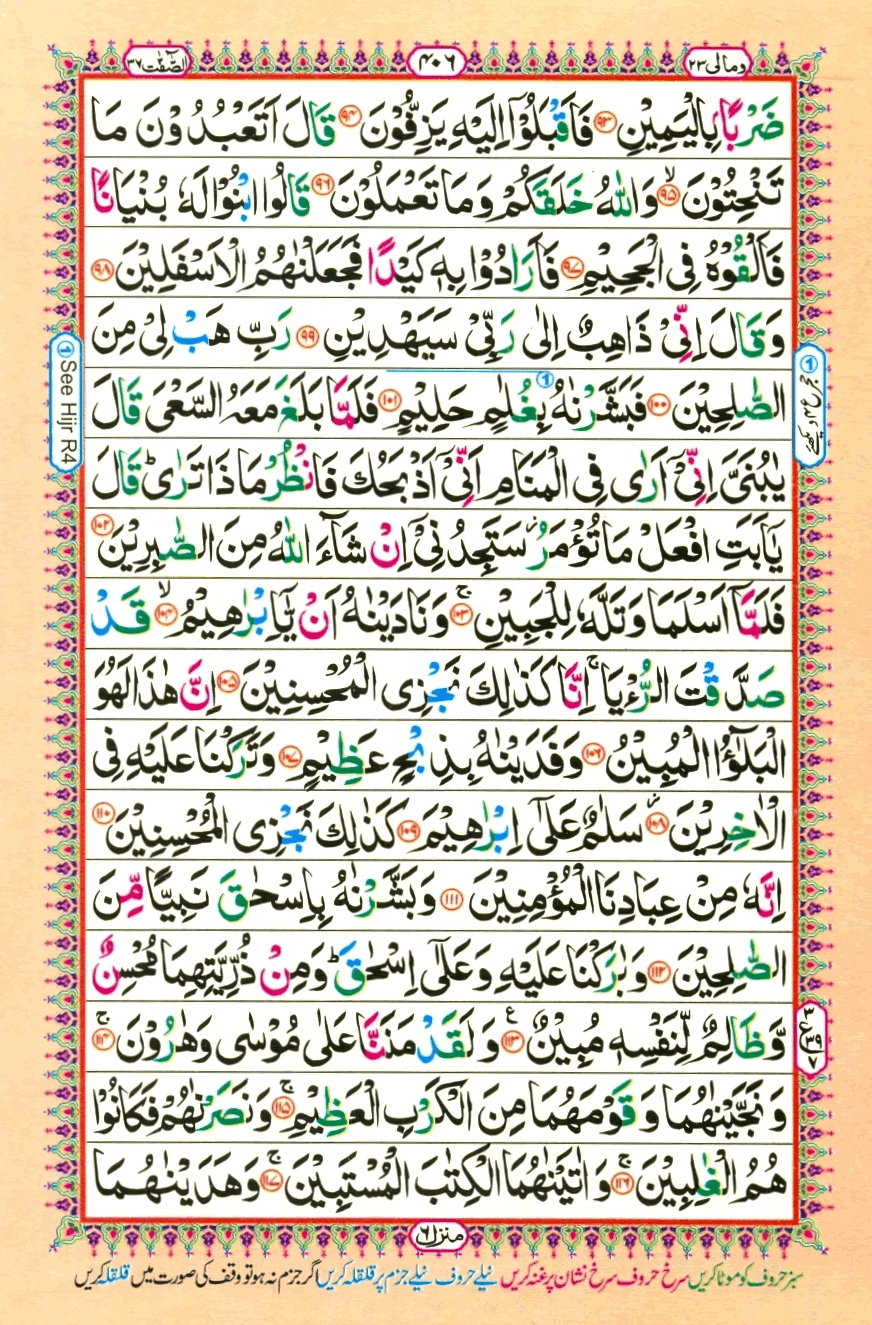 ومالی ٢٣
٤٠٦
الصّٰفّٰت ٣٧
ضَرْبًۢا بِالْیَمِیْنِ ﴿٩٣﴾ فَاَقْبَلُوْۤا اِلَیْهِ یَزِفُّوْنَ ﴿٩٤﴾ قَالَ اَتَعْبُدُوْنَ مَا
تَنْحِتُوْنَ ۙ﴿٩٥﴾ وَاللّٰهُ خَلَقَكُمْ وَمَا تَعْمَلُوْنَ ﴿٩٦﴾ قَالُوا ابْنُوْا لَهٗ بُنْیَانًا
فَاَلْقُوْهُ فِی الْجَحِیْمِ ﴿٩٧﴾ فَاَرَادُوْا بِهٖ كَیْدًا فَجَعَلْنٰهُمُ الْاَسْفَلِیْنَ ﴿٩٨﴾
وَقَالَ اِنِّیْ ذَاهِبٌ اِلٰی رَبِّیْ سَیَهْدِیْنِ ﴿٩٩﴾ رَبِّ هَبْ لِیْ مِنَ
الصّٰلِحِیْنَ ﴿١٠٠﴾ فَبَشَّرْنٰهُ بِغُلٰمٍ حَلِیْمٍ ﴿١٠١﴾ فَلَمَّا بَلَغَ مَعَهُ السَّعْیَ قَالَ
یٰبُنَیَّ اِنِّیْۤ اَرٰی فِی الْمَنَامِ اَنِّیْۤ اَذْبَحُكَ فَانْظُرْ مَاذَا تَرٰی ؕ قَالَ
یٰۤاَبَتِ افْعَلْ مَا تُؤْمَرُ ؗ سَتَجِدُنِیْۤ اِنْ شَآءَ اللّٰهُ مِنَ الصّٰبِرِیْنَ ﴿١٠٢﴾
فَلَمَّاۤ اَسْلَمَا وَتَلَّهٗ لِلْجَبِیْنِ ۚ﴿١٠٣﴾ وَنَادَیْنٰهُ اَنْ یّٰۤاِبْرٰهِیْمُ ۙ﴿١٠٤﴾ قَدْ
صَدَّقْتَ الرُّءْیَا ۚ اِنَّا كَذٰلِكَ نَجْزِی الْمُحْسِنِیْنَ ﴿١٠٥﴾ اِنَّ هٰذَا لَهُوَ
الْبَلٰٓؤُا الْمُبِیْنُ ﴿١٠٦﴾ وَفَدَیْنٰهُ بِذِبْحٍ عَظِیْمٍ ﴿١٠٧﴾ وَتَرَكْنَا عَلَیْهِ فِی
الْاٰخِرِیْنَ ۖ﴿١٠٨﴾ سَلٰمٌ عَلٰۤی اِبْرٰهِیْمَ ﴿١٠٩﴾ كَذٰلِكَ نَجْزِی الْمُحْسِنِیْنَ ﴿١١٠﴾
اِنَّهٗ مِنْ عِبَادِنَا الْمُؤْمِنِیْنَ ﴿١١١﴾ وَبَشَّرْنٰهُ بِاِسْحٰقَ نَبِیًّا مِّنَ
الصّٰلِحِیْنَ ﴿١١٢﴾ وَبٰرَكْنَا عَلَیْهِ وَعَلٰۤی اِسْحٰقَ ؕ وَمِنْ ذُرِّیَّتِهِمَا مُحْسِنٌ
وَّظَالِمٌ لِّنَفْسِهٖ مُبِیْنٌ ۧ﴿١١٣﴾ وَلَقَدْ مَنَنَّا عَلٰی مُوْسٰی وَهٰرُوْنَ ۚ﴿١١٤﴾
وَنَجَّیْنٰهُمَا وَقَوْمَهُمَا مِنَ الْكَرْبِ الْعَظِیْمِ ۚ﴿١١٥﴾ وَنَصَرْنٰهُمْ فَكَانُوْا
هُمُ الْغٰلِبِیْنَ ۚ﴿١١٦﴾ وَاٰتَیْنٰهُمَا الْكِتٰبَ الْمُسْتَبِیْنَ ۚ﴿١١٧﴾ وَهَدَیْنٰهُمَا
① See Hijr R4
٣ ع ٣٩ ٧
منزل ٦
سبز حروف کو موٹا کریں سرخ حروف سرخ نشان پر غنہ کریں نیلے حروف نیلے جزم پر قلقلہ کریں اگر جزم نہ ہو تو وقف کی صورت میں قلقلہ کریں